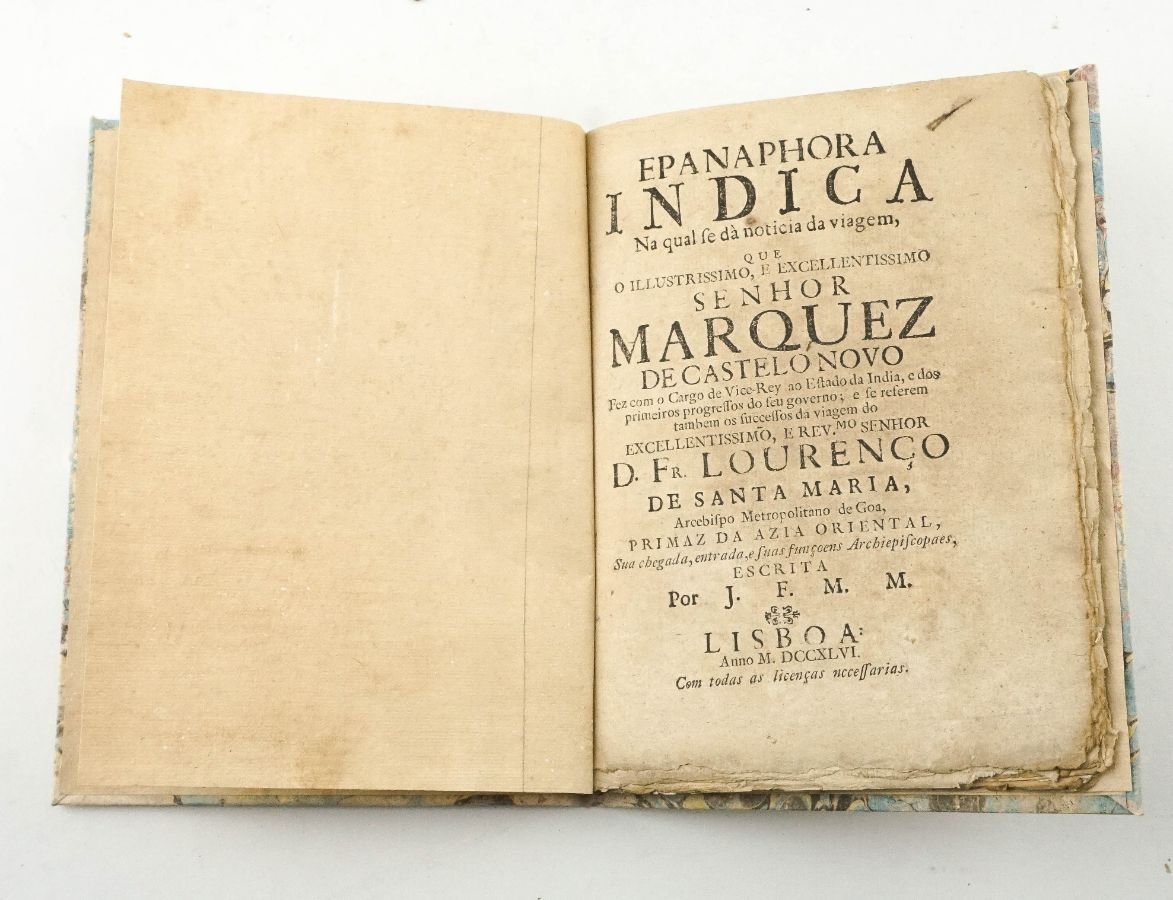 EPANAPHORA
INDICA
Na qual ſe dà noticia da viagem,
QUE
O ILLUSTRISSIMO, E EXCELLENTISSIMO
SENHOR
MARQUEZ
DE CASTELO NOVO
Fez com o Cargo de Vice-Rey ao Eſtado da India, e dos
primeiros progreſſos do ſeu governo; e ſe referem
tambem os ſucceſſos da viagem do
EXCELLENTISSIMO, E REV.MO SENHOR
D. FR. LOURENÇO
DE SANTA MARIA,
Arcebiſpo Metropolitano de Goa,
PRIMAZ DA AZIA ORIENTAL,
Sua chegada, entrada, e ſuas funçoens Archiepiſcopaes,
ESCRITA
Por J. F. M. M.
LISBOA:
Anno M. DCCXLVI.
Com todas as licenças neceſſarias.